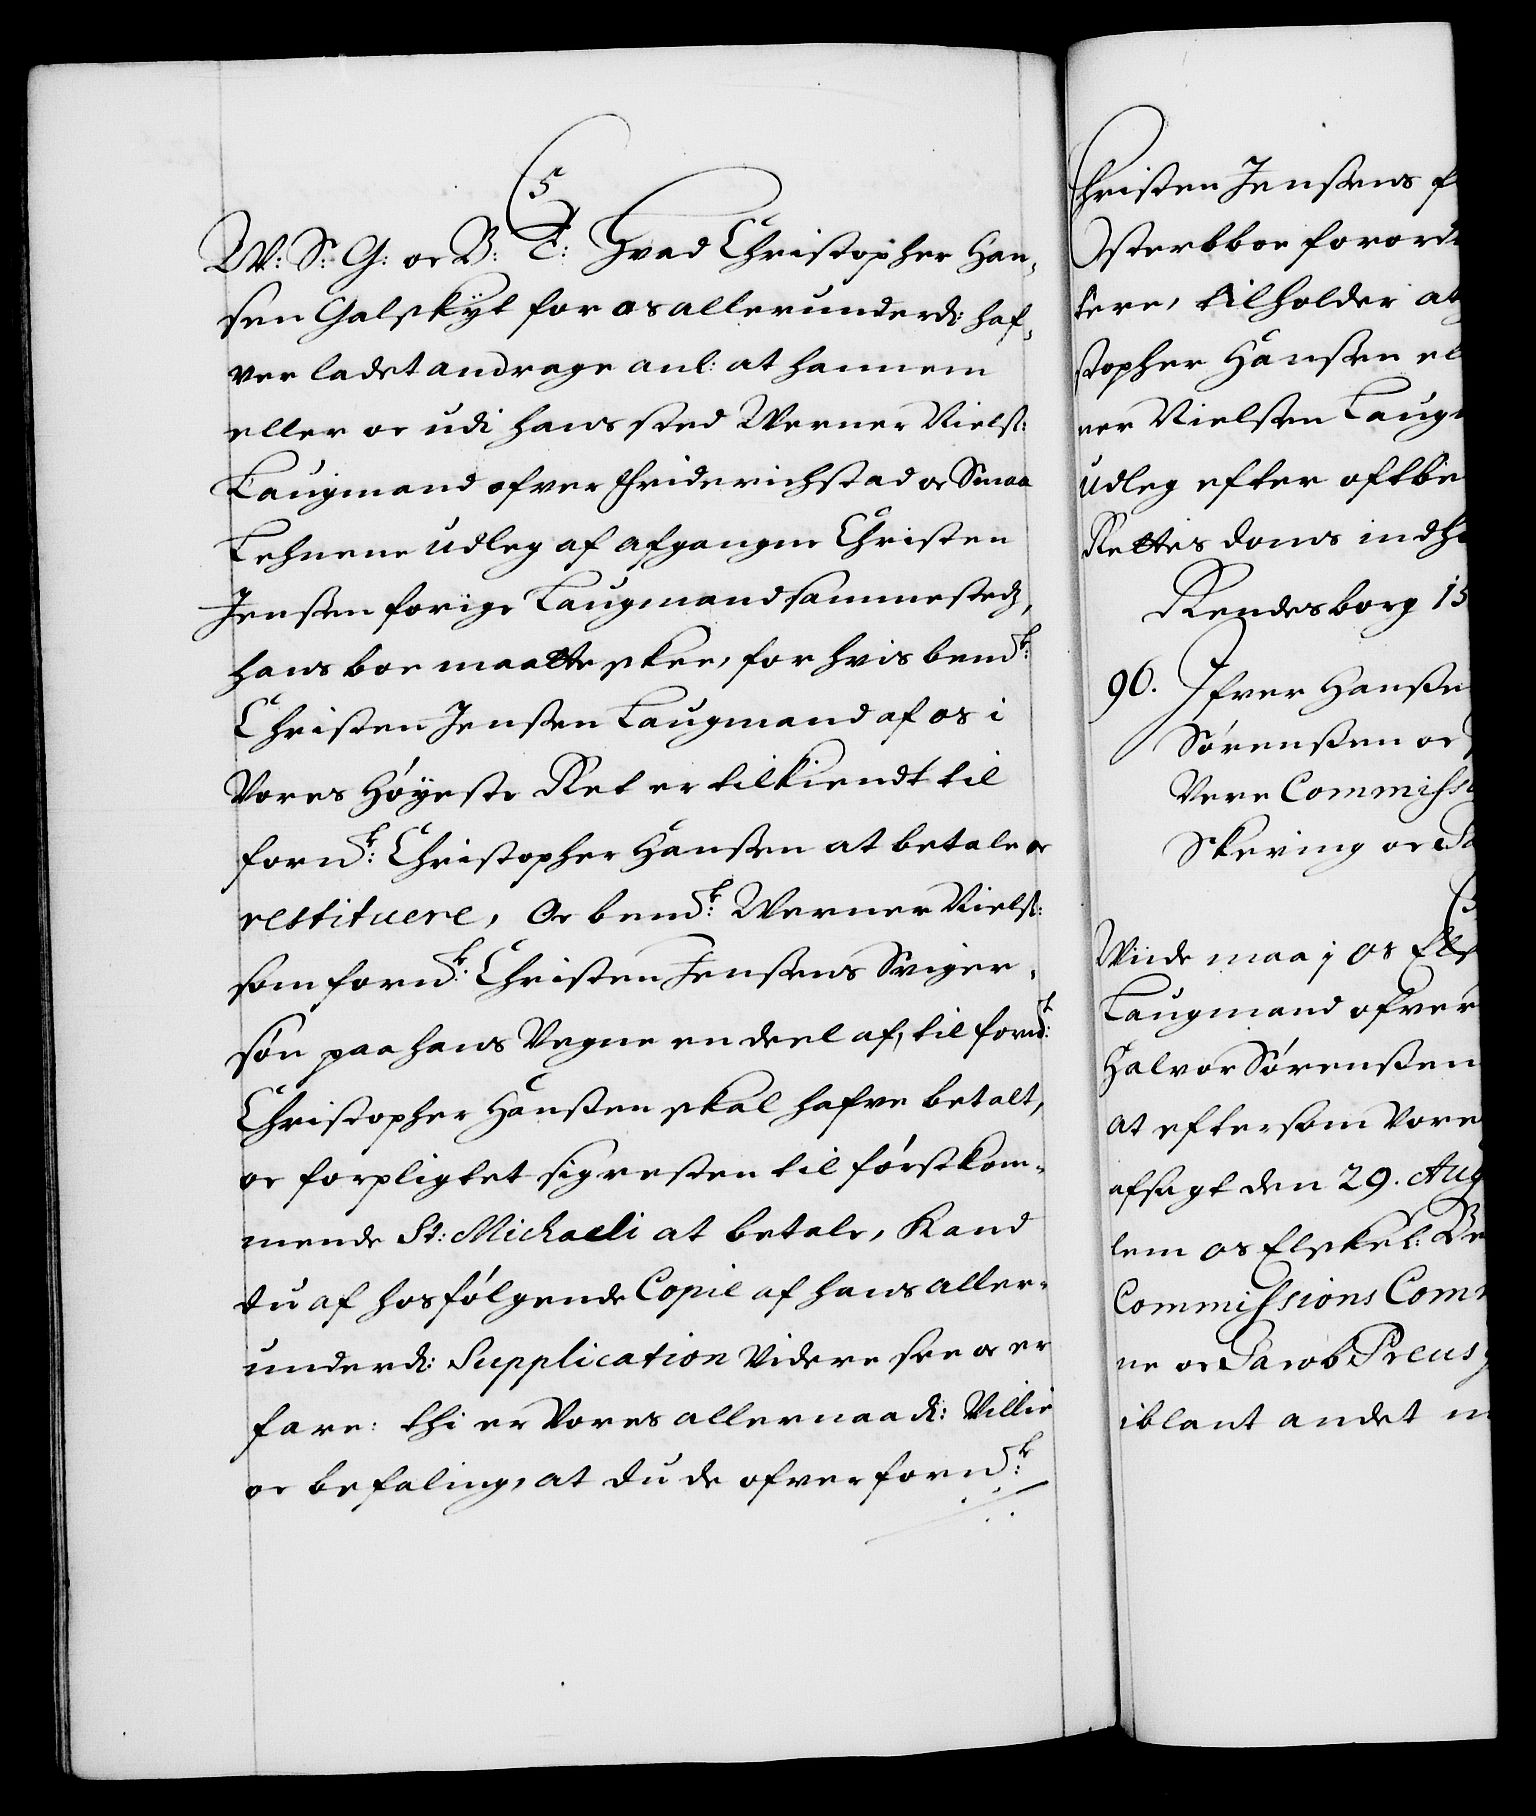 C5
W: S: G: oc B: T: Hvad Christopher Han,
sen Galskyt for os allerunderd: haf,
ver ladet andrage anl: at hannem
eller oc udi hans sted Werner Niels:
Laugmand ofver Friderichstad oc Smaa
Lehnene udleg af afgangne Christen
Jenssen forige Laugmand sammesteds,
hans boe maatte skee, for hvis bemdt:
Christen Jenssen Laugmand af os i
Vores Høÿeste Ret er tilkiendt til
fornd:t Christopher Hanssen at betale oc
restituere, Oc bemd:t Werner Niels:
som fornd:t Christen Jenssens Sviger,
søn paa hans Vegne en deel af, til fornd:t
Christopher Hanssen skal hafve betalt,
oc forpligtet sig resten til førstkom,
mende St: Michaeli at betale, Kand
du af hosfølgende Copie af hans aller,
underd: Supplication videre see oc er
fare: thi er Vores allernaad: Villie
oc befaling, at du de ofver fornd:t
Christen Jenssens
Sterbboe forord
tere, tilholder at
stopher Hanssen el
ner Nielssen Laugm
udleg efter oftbe
Rettes doms indh
Rendesborg 15
96. Ifver Hansse
Sørenssen oc
Vere Commiss
Skering oc Ja
Viide maa i os Elsk
Laugmand ofver
Halvor Sørenssen
at eftersom Vore
afsagt den 29. Aug
lem os Elskel: Be
Commissions Com
ne oc Jacob Preus
iblant andet